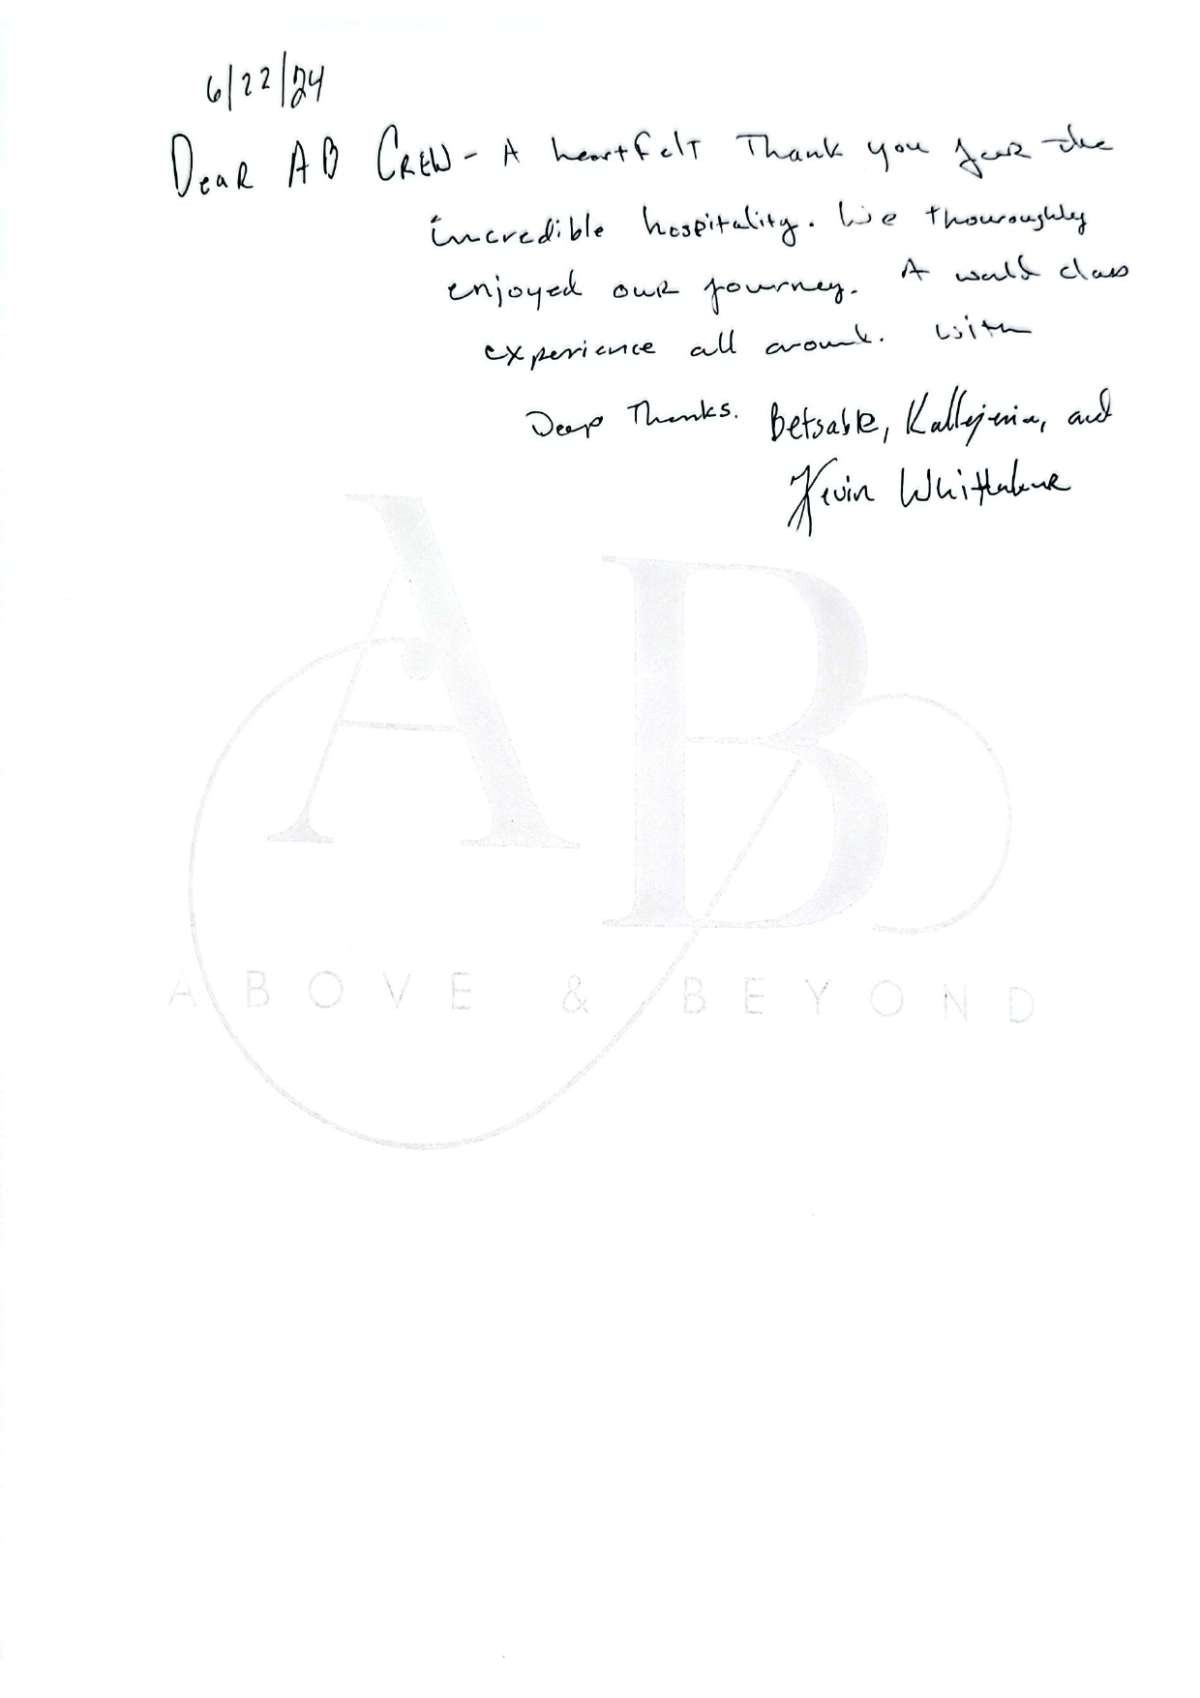 6/22/24
Dear AB Crew - A heartfelt Thank you for the
incredible hospitality. We thouroughly
enjoyed our journey. A world class
experience all around. With
Deep Thanks. Betsable, and
Kevin Whittaker
AB
ABOVE & BEYOND